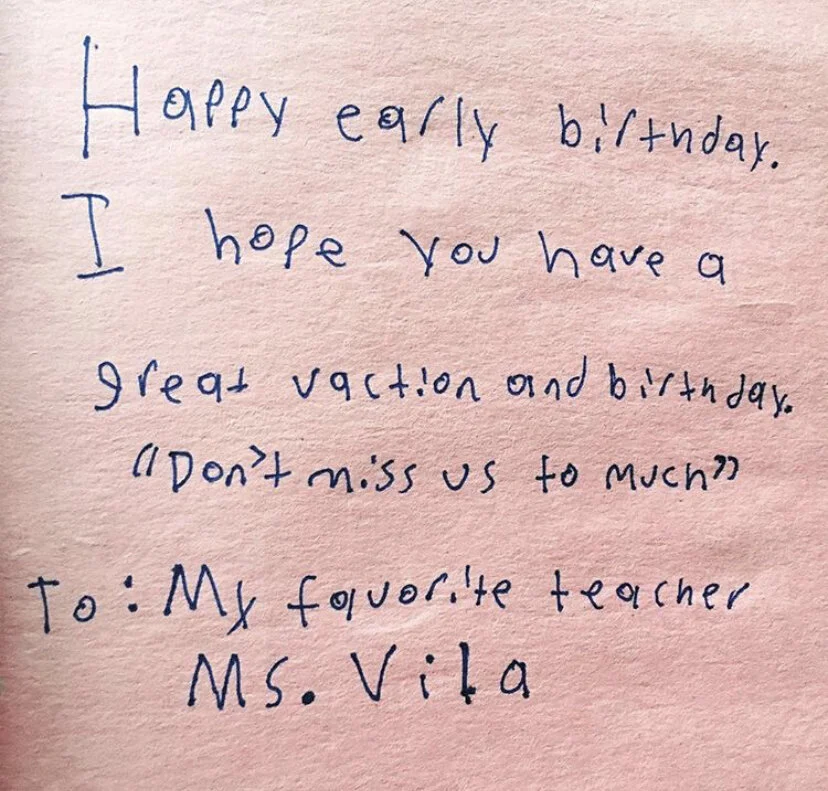 Happy early birthday.
I hope you have a
great vaction and birthday.
“Don't miss us to much”
To: My favorite teacher
Ms. Vila